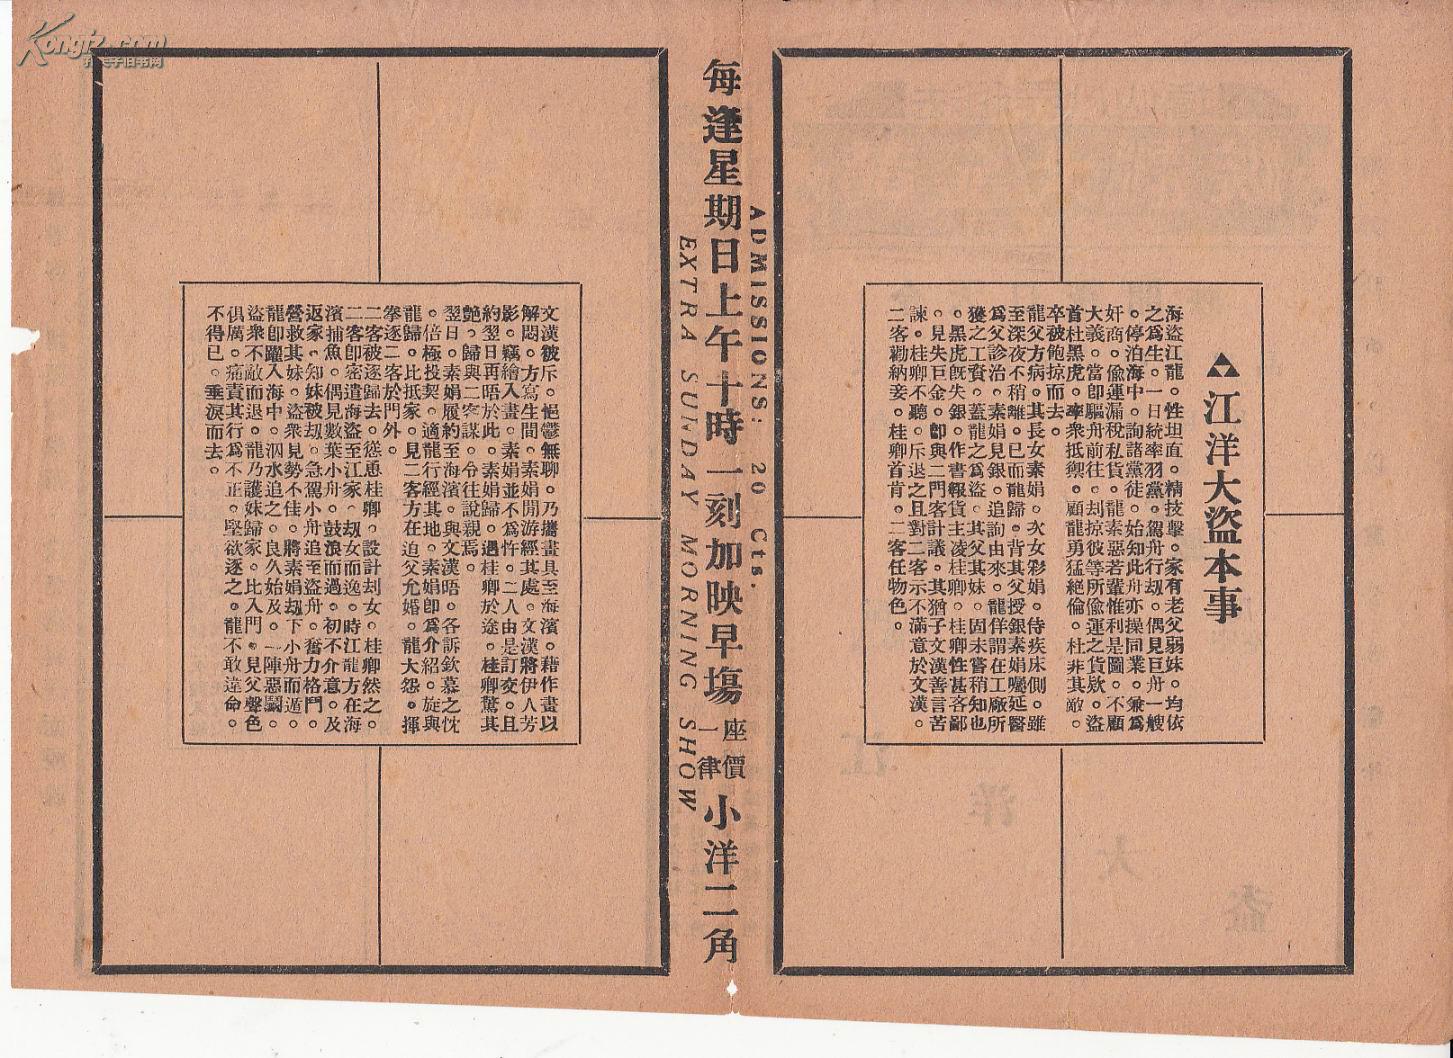 ▲▲▲江洋大盜本事
海盜江龍。性坦直。精技擊。家有老父弱妹。均依
之爲生。一日統率羽黨。駕舟行刼。偶見巨舟一艘
。停泊海中。詢諸黨徒。始知此舟亦操同業。兼爲
奸商。偷運漏稅私貨。龍素惡若輩惟利是圖。不顧
大義。當卽驅舟前往。刦掠彼等所偷運之貨欵。盜
首杜黑虎。率衆抵禦。顧龍勇猛絕倫。杜非其敵。
卒被飽掠而去。
龍父方病。其長女素娟。次女彩娟。侍疾床側。雖
至深夜不稍離。已而龍歸。背其父授銀素娟囑延醫
爲父診治。素娟見銀。追詢由來。龍佯謂在工廠所
獲之工資。蓋龍之爲盜。其父其妹。固未嘗稍知也
。黑虎旣失銀。作書報貨主凌桂卿。桂卿性甚客鄙
。見失巨金。卽與二門客計議。其猶子文漢善言苦
諫。桂卿不聽。斥退之且對二客示不滿意於文漢。
二客勸納妾。桂卿首肯。二客任物色。
每逢星期日上午十時一刻加映早塲 座價一律 小洋二角
ADMISSIONS: 20 Cts.
EXTRA SUNDAY MORNING SHOW
文漢被斥。悒鬱無聊。乃攜畫具至海濱。藉作畫以
解悶。方寫生間。素娟閒游經其處。文漢將伊人芳
影。竊繪入畫。素娟並不爲忤。二人由是訂交。且
約翌日再晤於此。素娟歸。遇桂卿於途。桂卿驚其
艶。歸與二客謀。令往說親焉。
翌日。素娟履約至海濱。與文漢晤。各訴欽慕之忱
。倍極投契。適龍行經其地。素娟卽爲介紹。旋與
龍歸。比抵家。見二客方在迫父允婚。龍大怨。揮
拳逐二客於門外。
二客被逐歸去。慫恿桂卿。設計刦女。桂卿然之。
二客卽密遣海盜至江家。刼女而逸。時江龍方在海
濱捕魚。偶見數葉小舟。鼓浪而過。初不介意。及
返家。知妹被刼。急駕小舟追至盜舟。奮力格鬥。
營救其妹。盜衆見勢不佳。將素娟刼下小舟而遁。
龍卽躍入海中。泅水追之。良久始及。一陣惡鬭。
盜衆不敵而退。龍乃護妹歸家。比入門。見父聲色
俱厲。痛責其行爲不正。堅欲逐之。龍不敢違命。
不得已。垂淚而去。